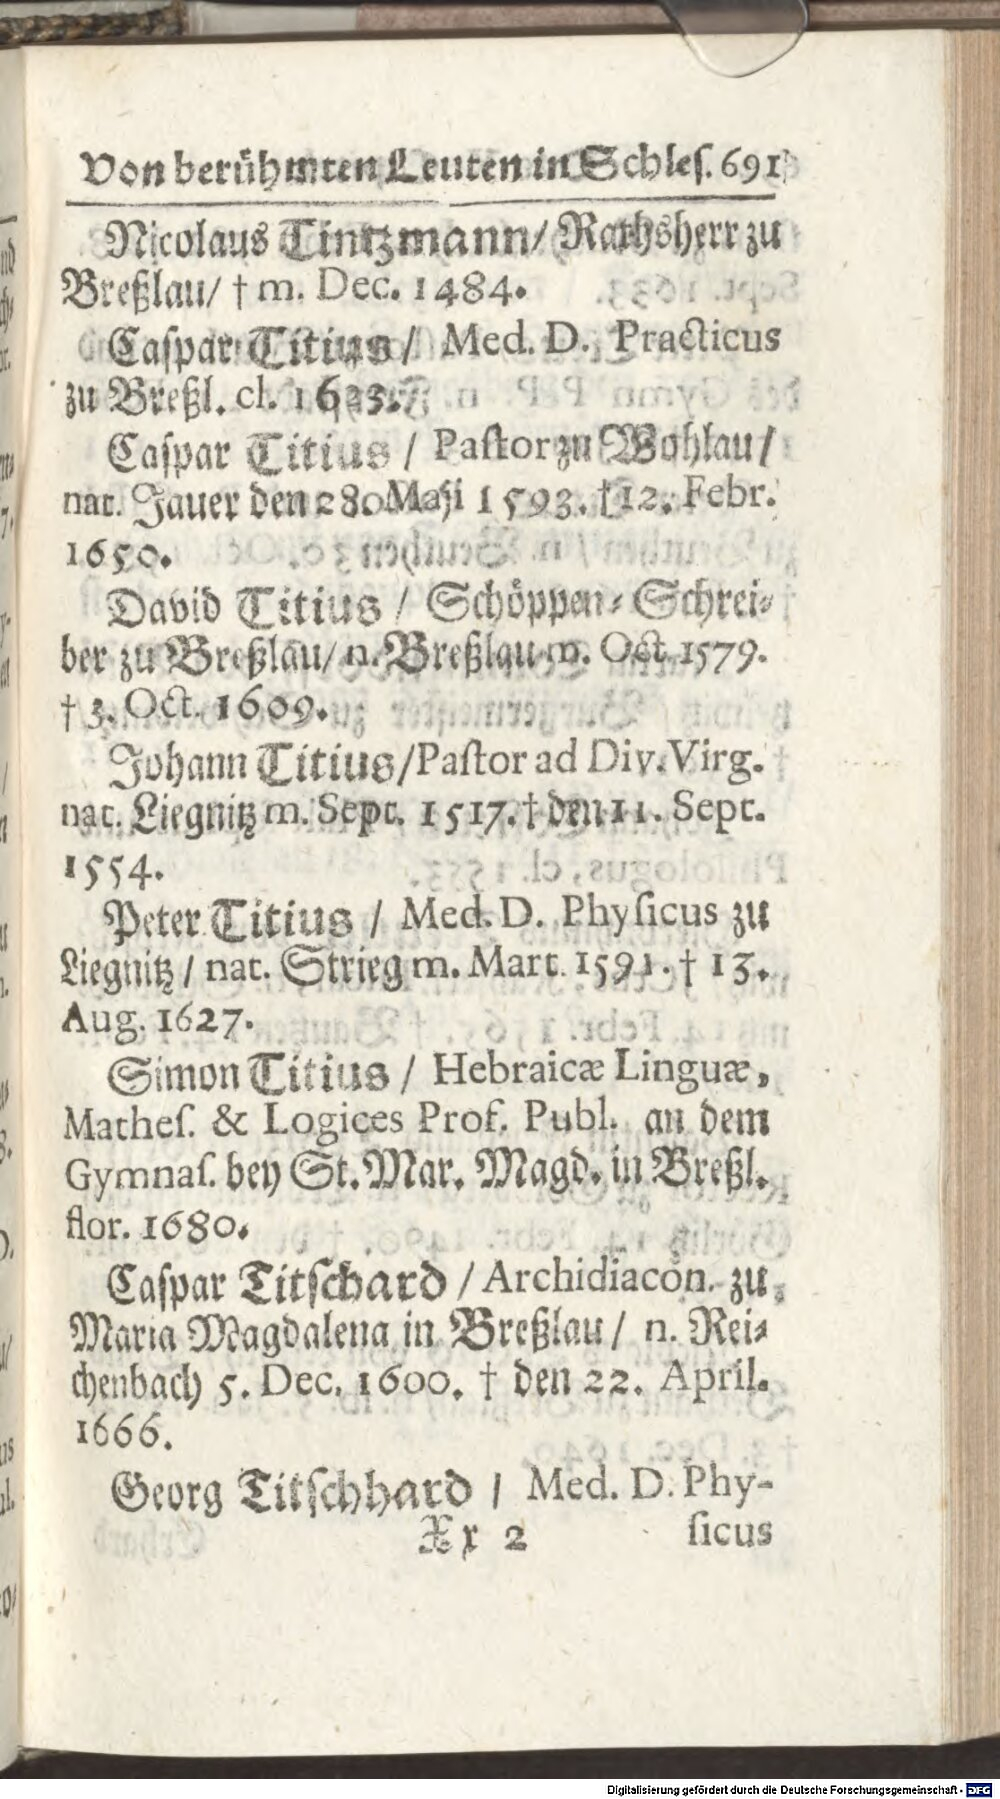 Von berühmten Leuten in Schleſ. 691
Nicolaus Tintzmann/ Rathsherr zu
Breßlau/ † m. Dec. 1484.
Caſpar Titius/ Med. D. Practicus
zu Breßl. cl. 1623.
Caſpar Titius / Paſtor zu Wohlau/
nat. Jauer den 28. Maji 1593. † 12. Febr.
1650.
David Titius / Schöppen-Schrei-
ber zu Breßlau/ n. Breßlau m. Oct. 1579.
† 3. Oct. 1609.
Johann Titius/Paſtor ad Div. Virg.
nat. Liegnitz m. Sept. 1517. † den 11. Sept.
1554.
Peter Titius / Med. D. Phyſicus zu
Liegnitz / nat. Strieg m. Mart. 1591. † 13.
Aug. 1627.
Simon Titius / Hebraicæ Linguæ,
Matheſ. & Logices Prof. Publ. an dem
Gymnaſ. bey St. Mar. Magd. in Breßl.
flor. 1680.
Caſpar Titſchard / Archidiacon. zu
Maria Magdalena in Breßlau / n. Rei-
chenbach 5. Dec. 1600. † den 22. April.
1666.
Georg Titſchhard / Med. D. Phy-
Xx 2 ſicus
Digitalisierung gefördert durch die Deutsche Forschungsgemeinschaft - DFG